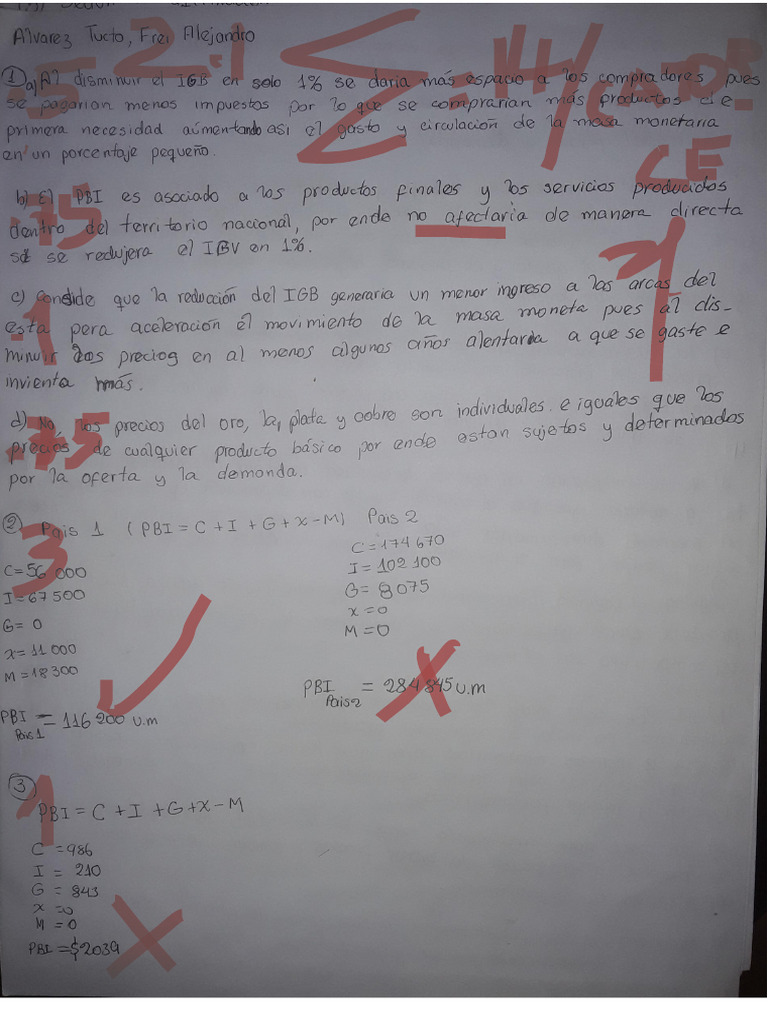 Alvarez Tucto, Frei Alejandro
2.1
= 14/CATOR
CE
5
① a) Al disminuir el IGB en solo 1% se daria más espacio a los compradores pues
se pagarian menos impuestos por lo que se comprarian más productos de
primera necesidad aumentando asi el gasto y circulación de la masa monetaria
en un porcentaje pequeño.
.75
b) El PBI es asociado a los productos finales y los servicios producidos
dentro del territorio nacional, por ende no afectaria de manera directa
si se redujera el IGV en 1%.
1
c) que la reducción del IGB generaria un menor ingreso a las arcas del
esta pera aceleración el movimiento de la masa moneta pues al dis-
minuir los precios en al menos algunos años alentaria a que se gaste e
invienta más.
.75
d) No, los precios del oro, la plata y cobre son individuales e iguales que los
precios de cualquier producto básico por ende estan sujetos y determinados
por la oferta y la demanda.
3
② Pais 1 (PBI = C + I + G + X - M) Pais 2
C=56 000
I=67500
G= 0
x=11 000
M=18300
PBI Pais 1 = 116 200 u.m
C=174 670
I=102 100
G=8075
x=0
M=0
PBI Pais 2 = 284 845 u.m
1
③
PBI = C + I + G + X - M
C = 986
I = 210
G = 843
x =0
M = 0
PBI =$2039